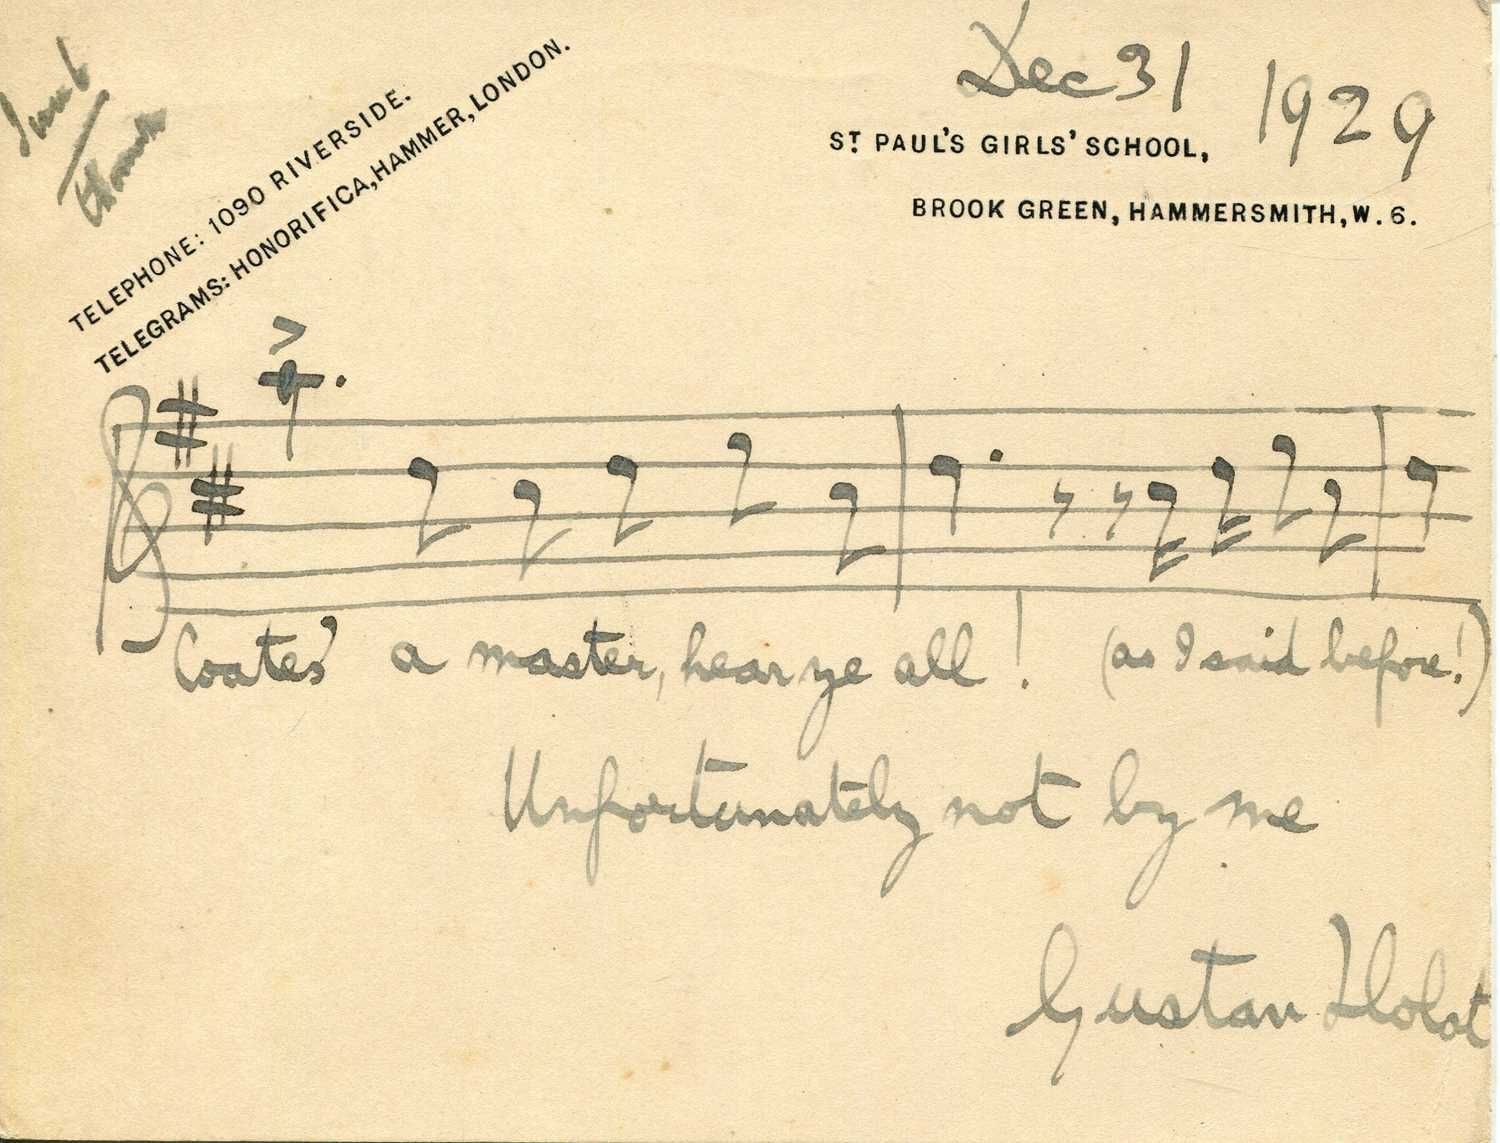 Dec 31 1929
ST PAUL'S GIRLS' SCHOOL,
BROOK GREEN, HAMMERSMITH, W.6.
TELEPHONE: 1090 RIVERSIDE.
TELEGRAMS: HONORIFICA, HAMMER, LONDON.
Coates' a master, hear ye all! (as I said before!)
Unfortunately not by me
Gustav Holst